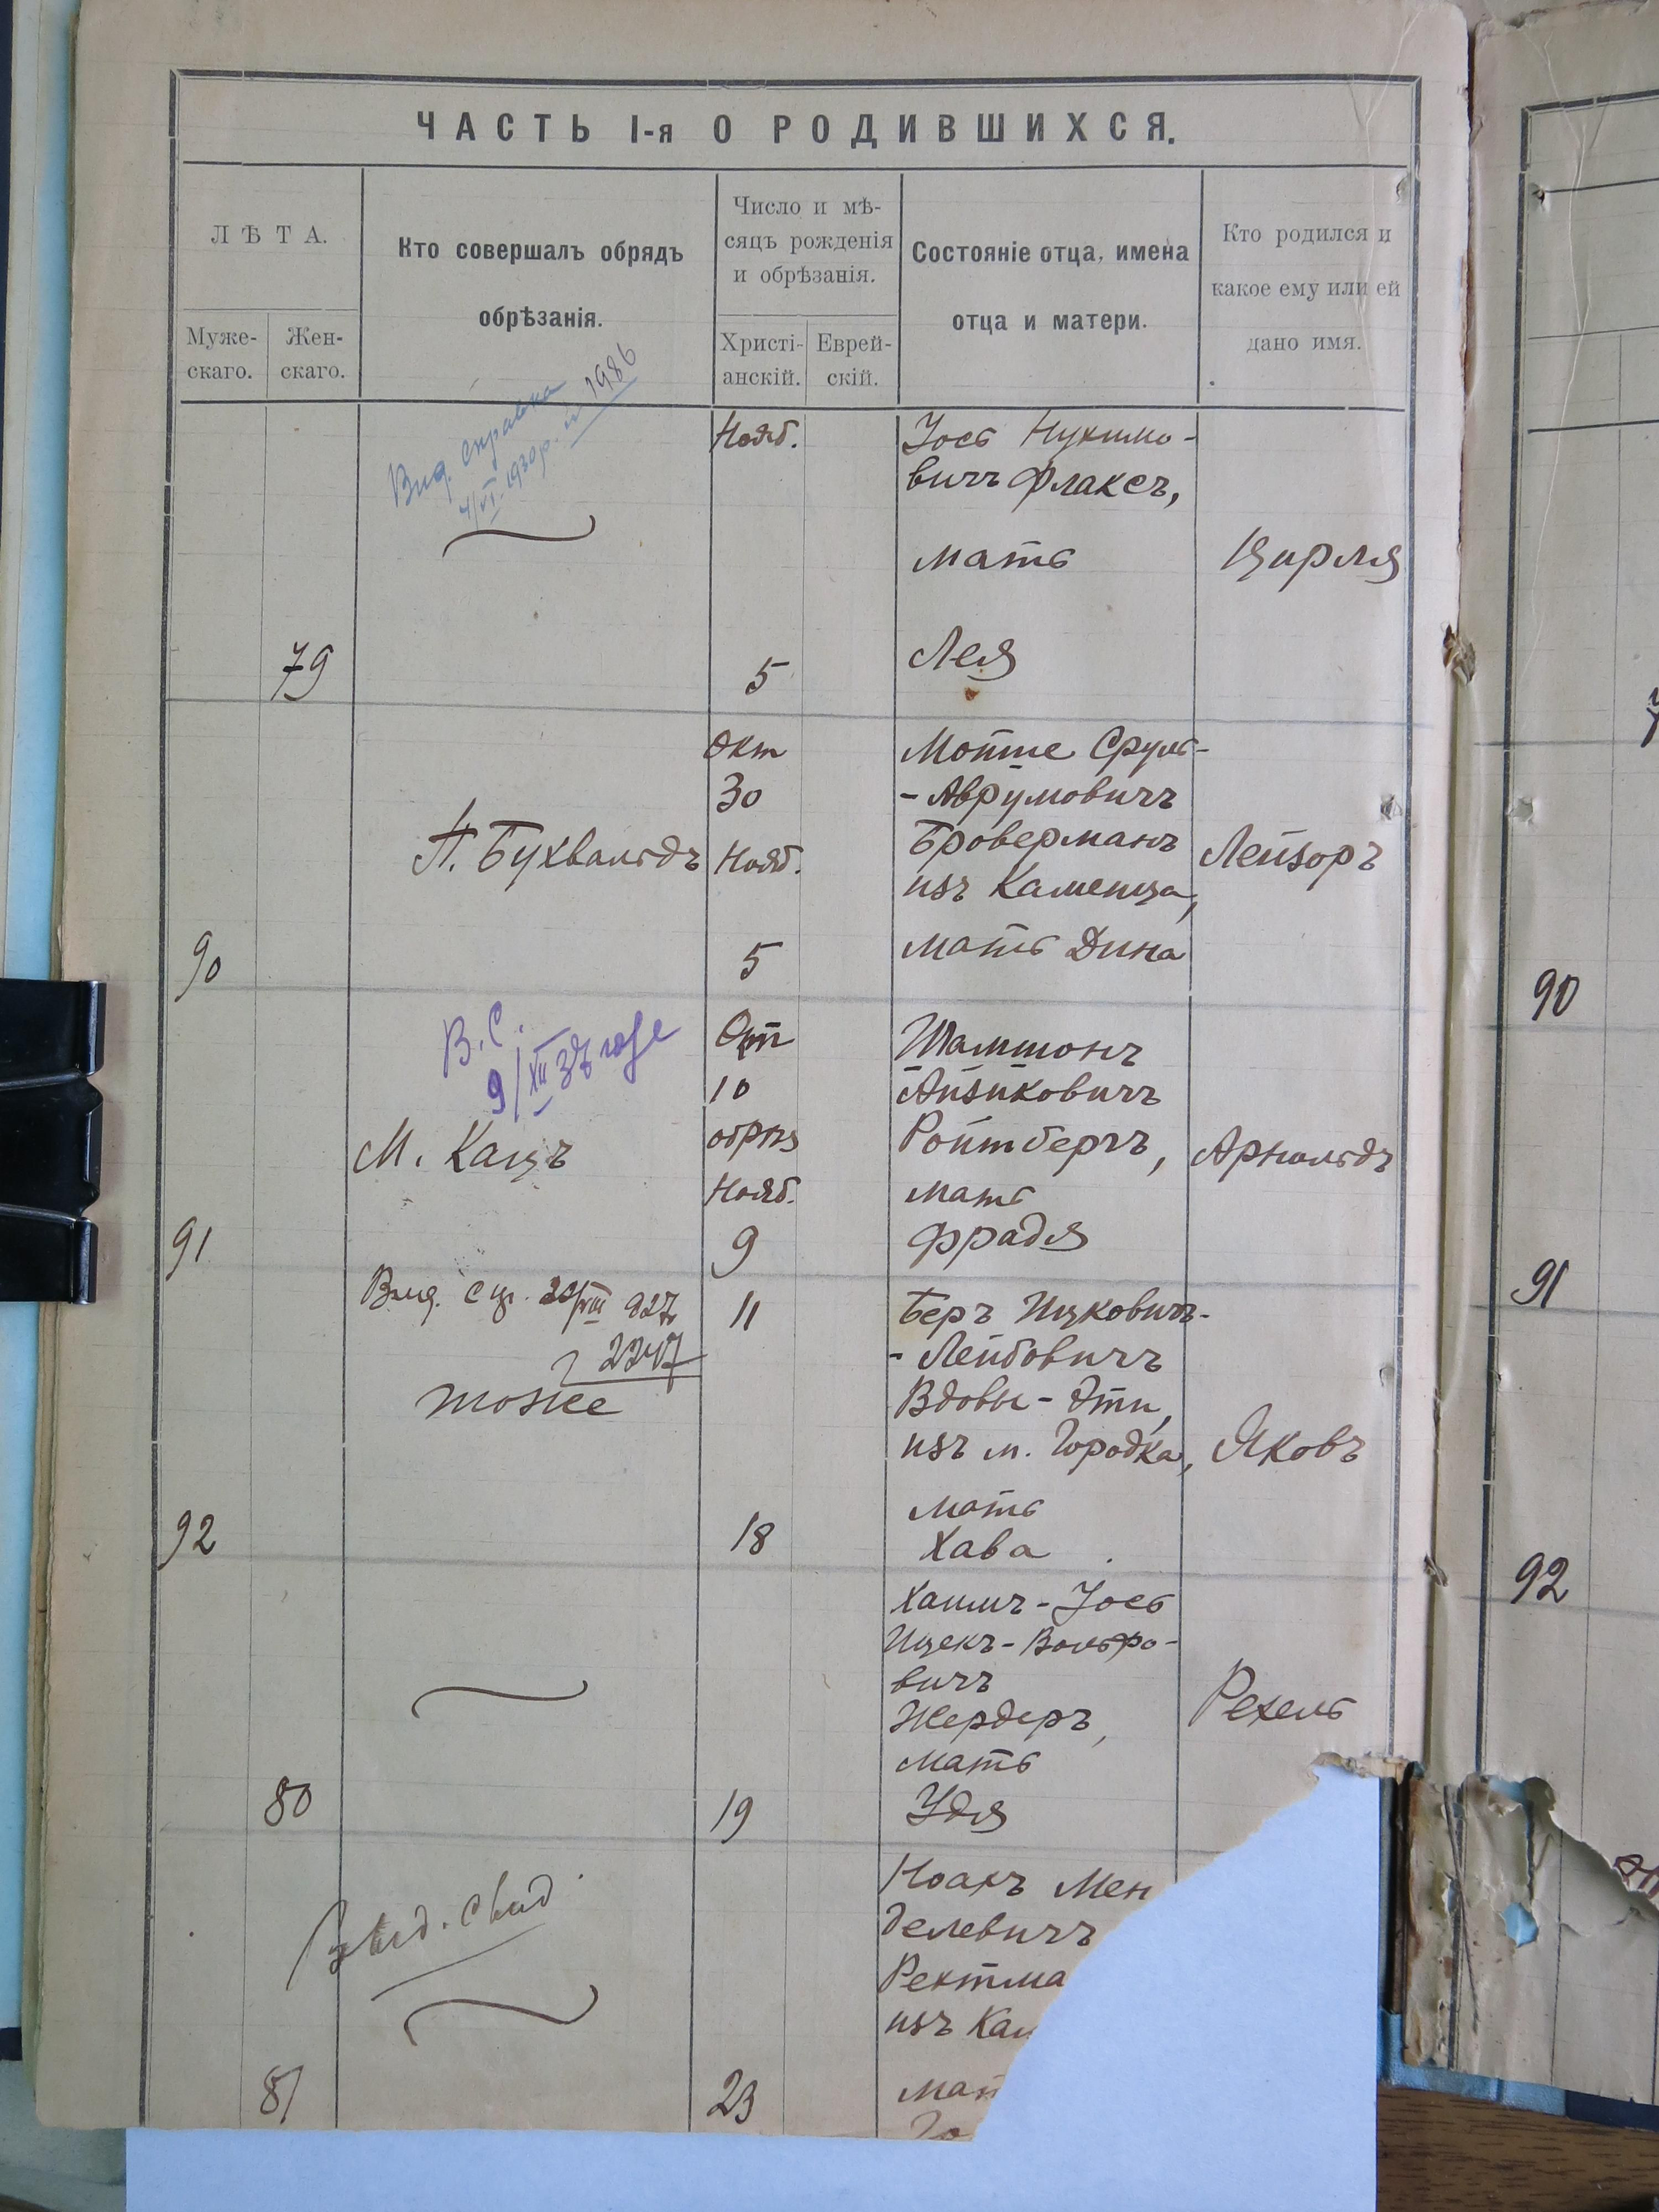 ЧАСТЬ I-я О РОДИВШИХСЯ.
ЛѢТА.
Муже-
скаго.
Жен-
скаго.
Кто совершалъ обрядъ
обрѣзанія.
Число и мѣ-
сяцъ рожденія
и обрѣзанія.
Христі-
анскій.
Еврей-
скій.
Состояніе отца, имена
отца и матери.
Кто родился и
какое ему или ей
дано имя.
Вид. справка
4/VI 1930р. № 1986
79
Нояб.
5
Іось Нухимо-
вичъ Флаксъ,
мать
Лея
Цирля
90
П. Бухвальдъ
Окт
30
Нояб.
5
Мойше Сруль-
-Аврумовичъ
Броверманъ
изъ Каменца,
мать Дина
Лейзоръ
В. С.
9/XII
91
М. Кацъ
10
обрѣз
Нояб.
9
Шамшонъ
Айзиковичъ
Ройтберъ,
мать
Фрадя
Арнольдъ
Вид. 927
2247
92
тоже
11
18
Беръ Ицковичъ-
-Лейбовичъ
Вдовы-Эти,
изъ м. Городка,
мать
Хава
Яковъ
80
19
Хаимъ-Іось
Ицекъ-Вольфо-
вичъ
Жердеръ,
мать
Удя
Рехель
Выд. свид.
81
23
Ноахъ Мен
делевичъ
Рехтма
изъ Кам
мат
Го
90
91
92